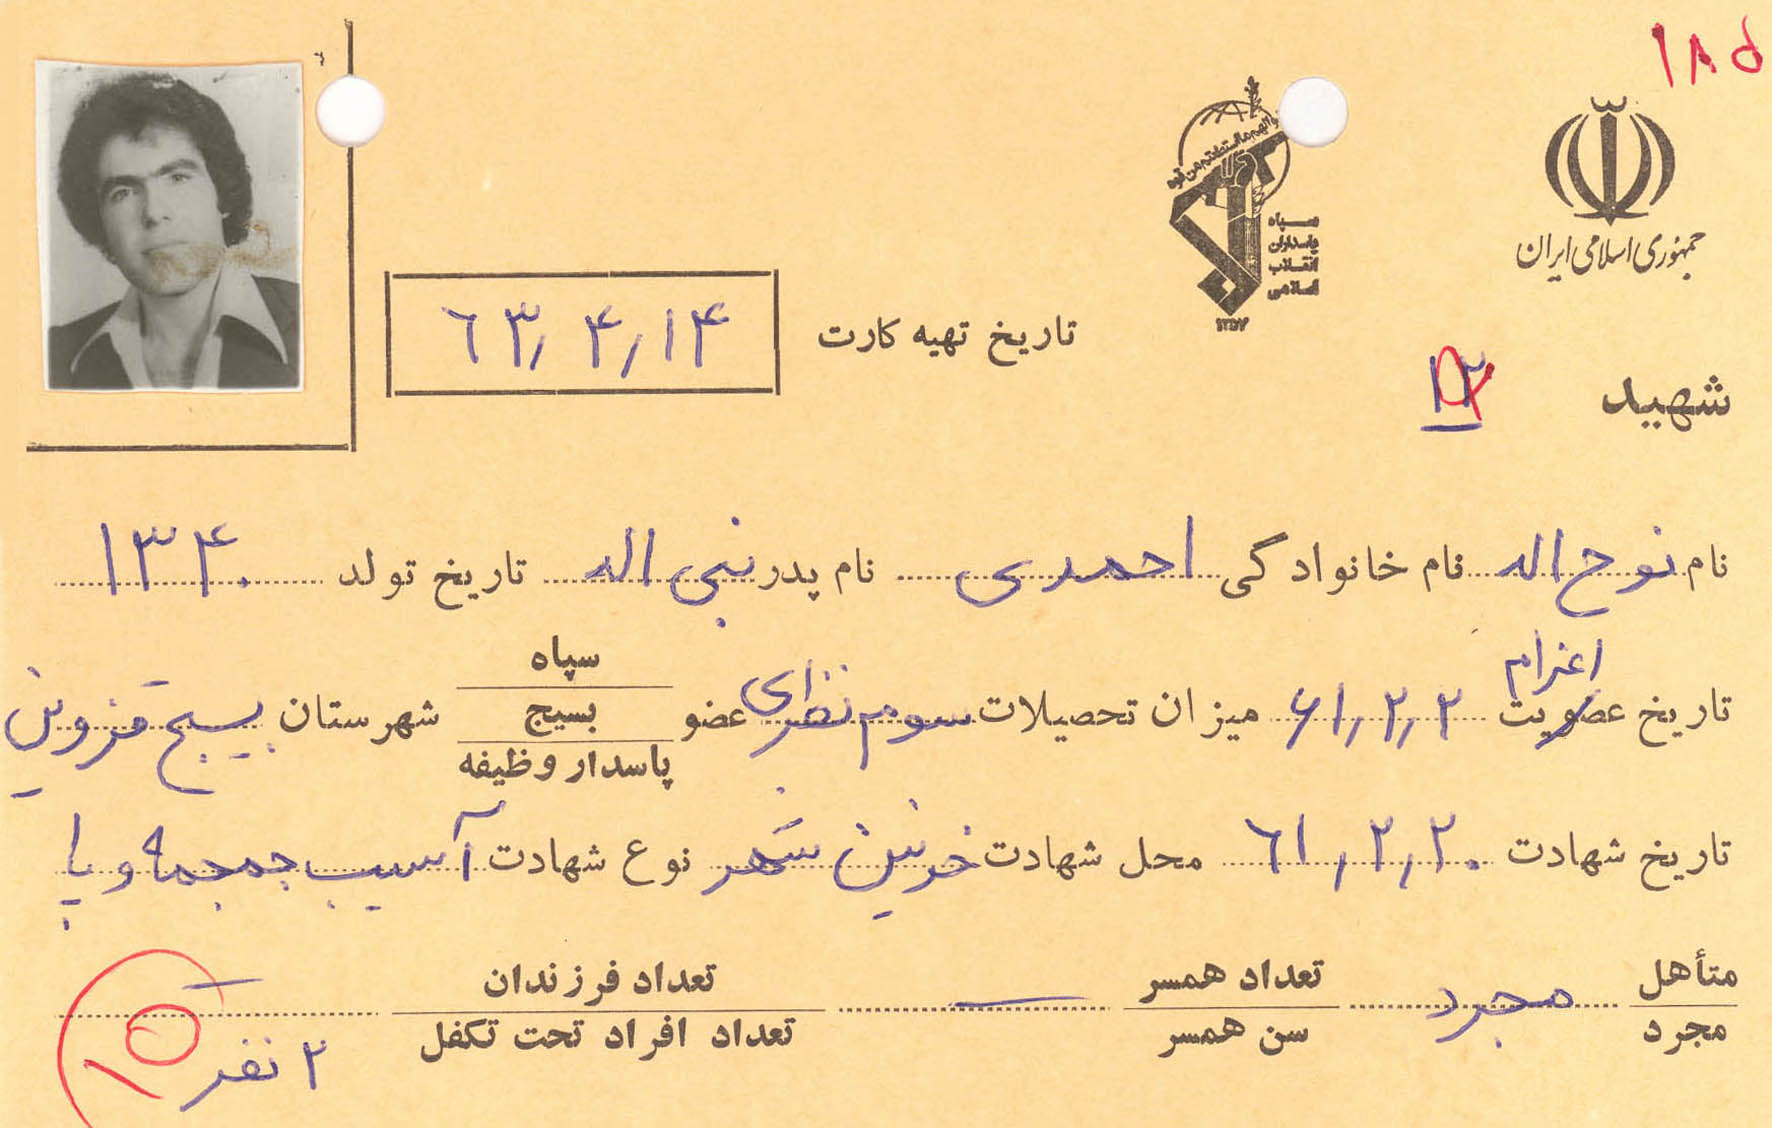 ۱۸۵
جمهوری اسلامی ایران
سپاه
پاسداران
انقلاب
اسلامی
۱۳۵۷
تاریخ تهیه کارت ۶۳٫۴٫۱۴
شهید
نام نوح اله نام خانوادگی احمدی نام پدر نبی اله تاریخ تولد ۱۳۴۰
اعزام
تاریخ عضویت ۶۱٫۲٫۲ میزان تحصیلات سوم نظری عضو سپاه بسیج پاسدار وظیفه شهرستان بسیج قزوین
تاریخ شهادت ۶۱٫۲٫۲۰ محل شهادت خونین شهر نوع شهادت آسیب جمجمه و پا
متأهل مجرد مجرد تعداد همسر سن همسر — تعداد فرزندان — تعداد افراد تحت تکفل ۲ نفر